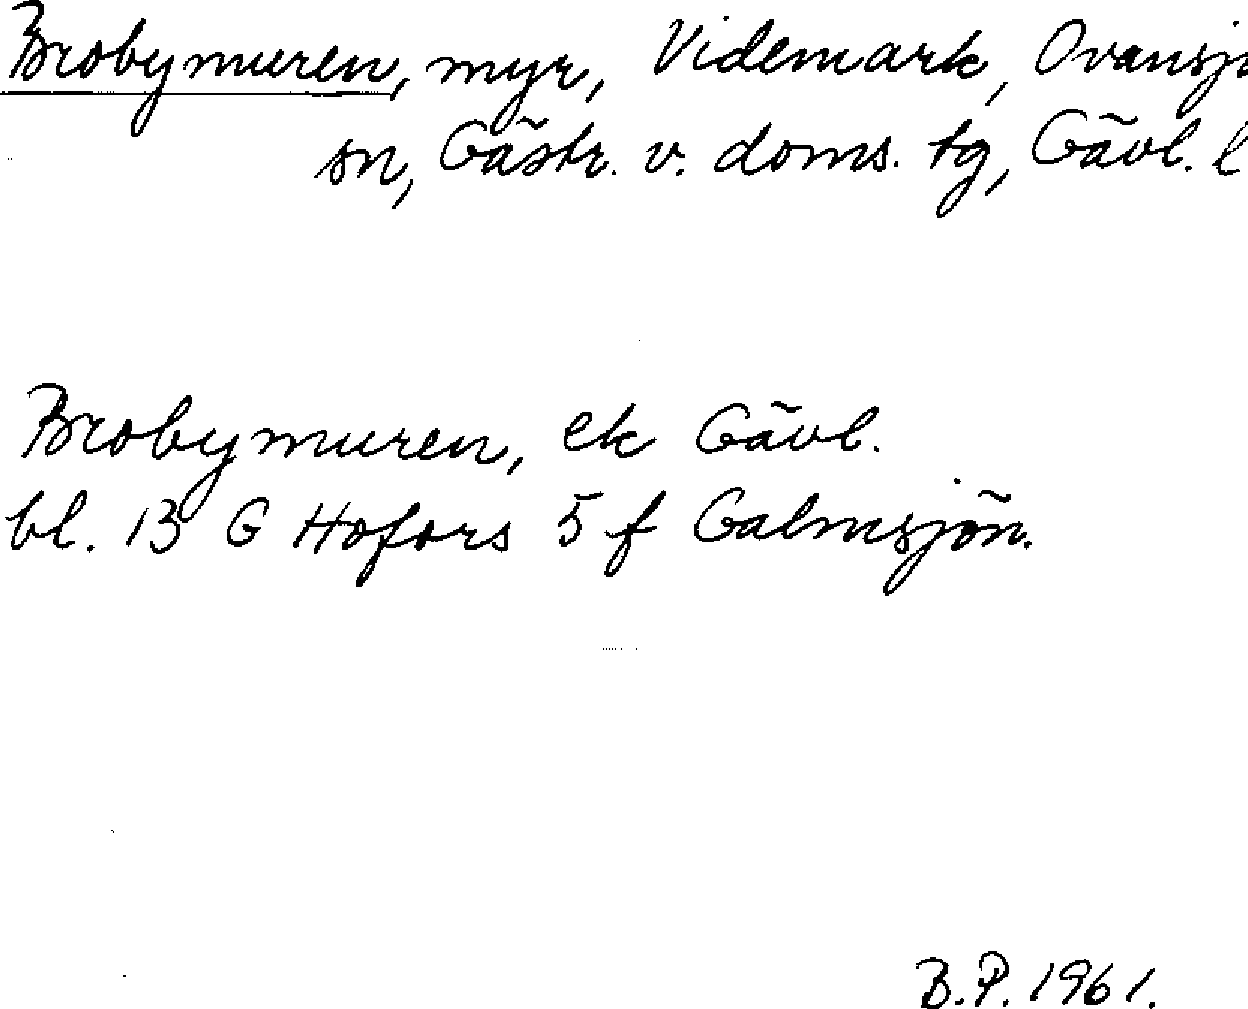 Brobymuren, myr, Videmark, Ovansj
sn, Gästr. v. doms. tg, Gävl. l
Brobymuren, ek Gävl.
bl. 13 G Hofors 5 f Galmsjön.
B.P. 1961.